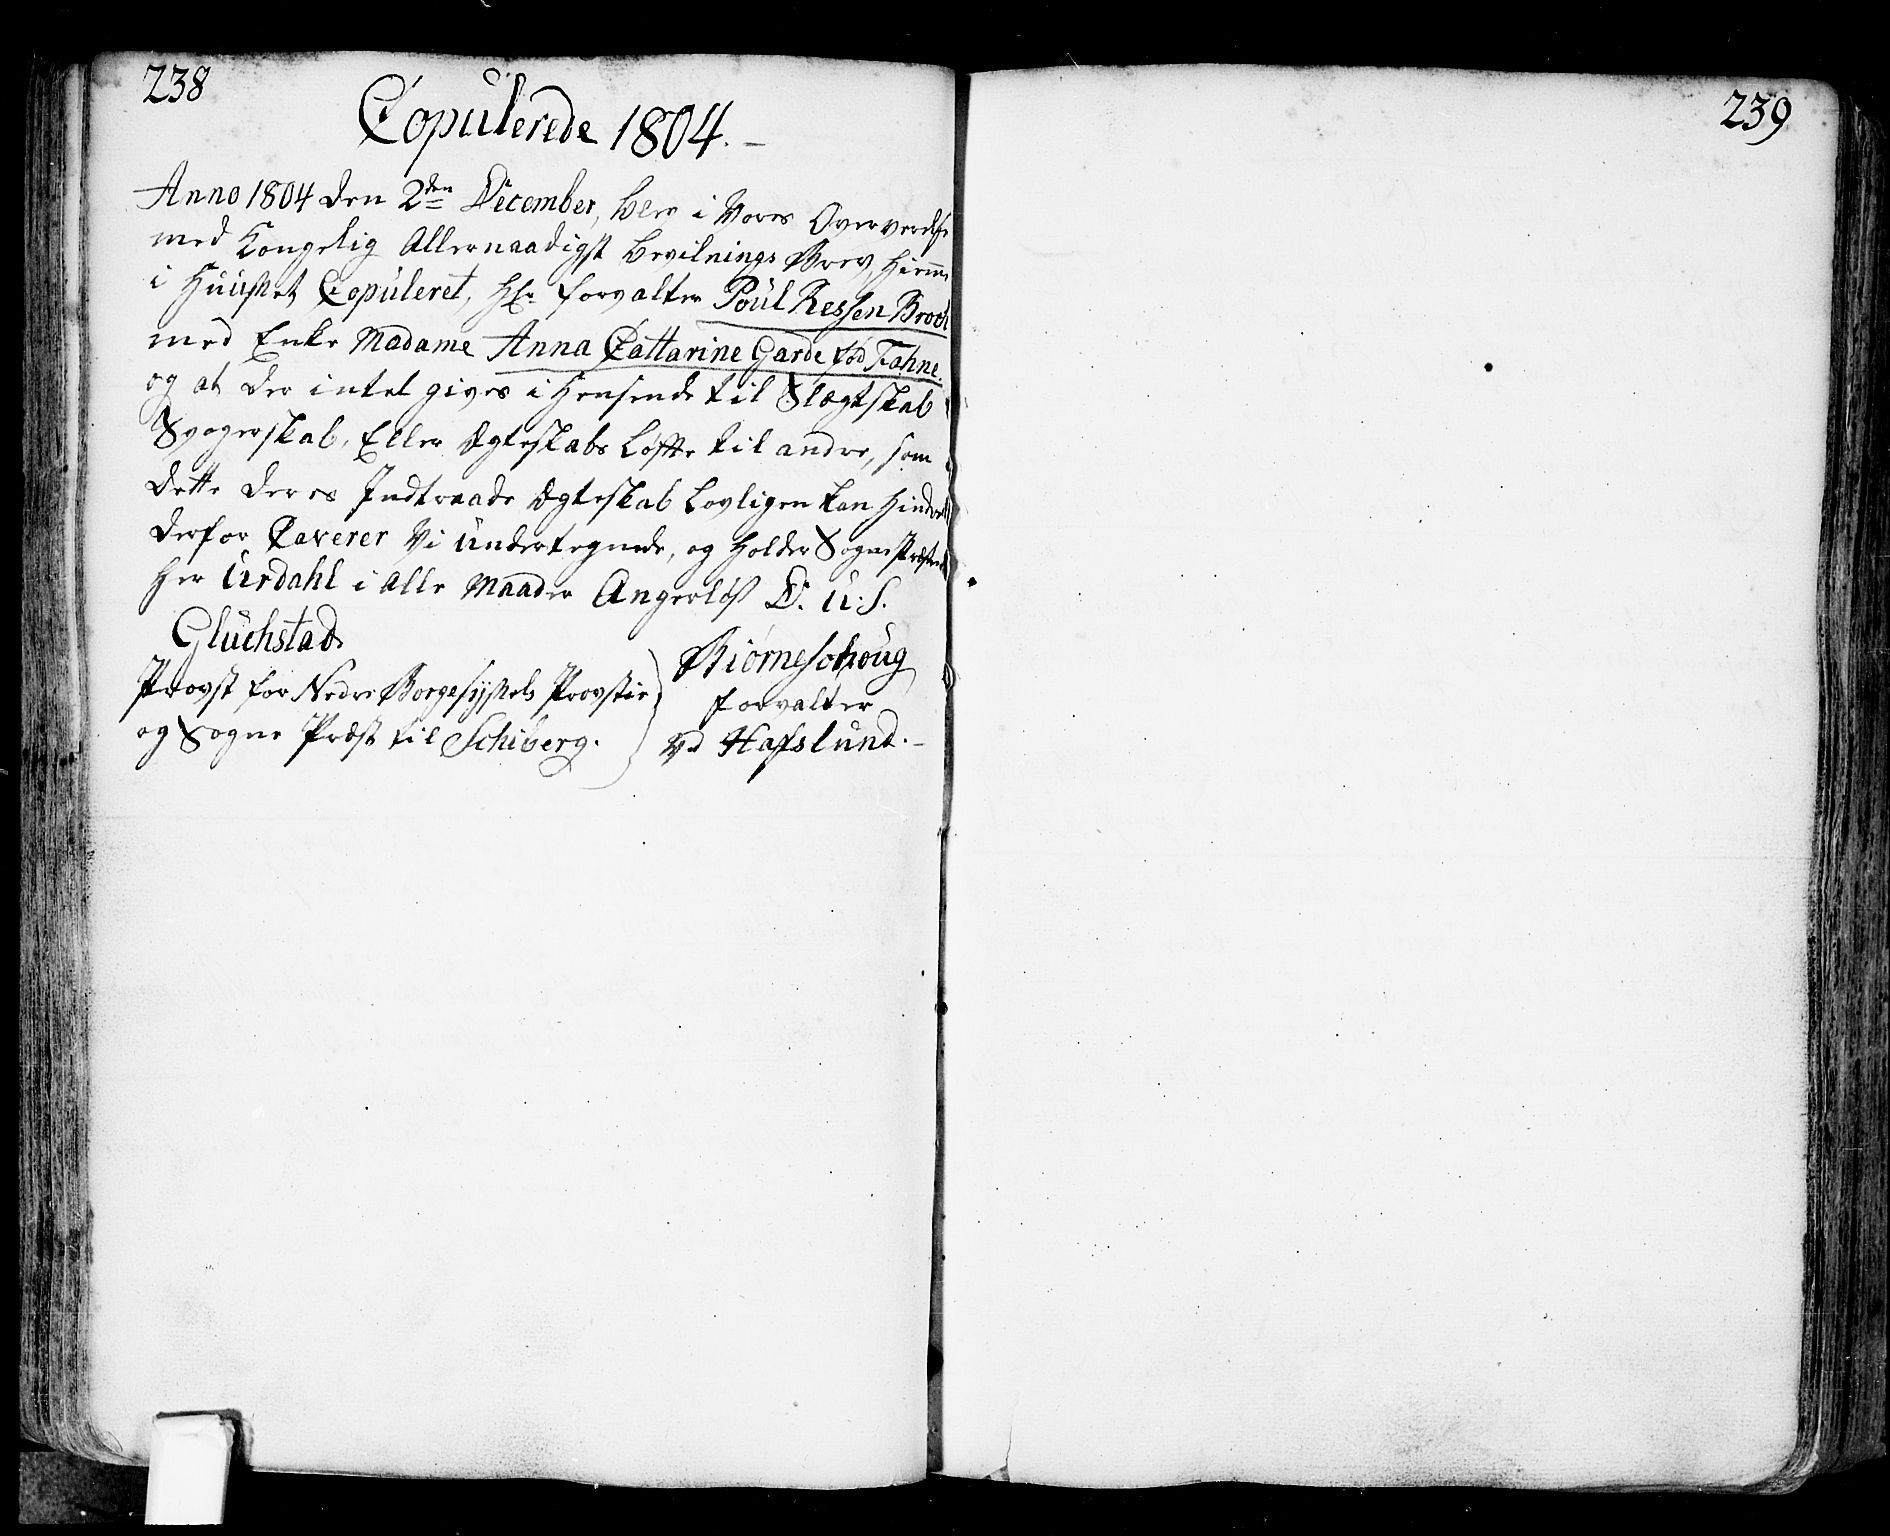 238
Copulerede 1804.
Anno 1804 den 2den December, blev i Vores Overværelse
med Kongelig Allernaadigst Bevilnings Brev, hiemme
i Huuset Copuleret, Hr. Forvalter Poul Ressen Broch
med Enke Madame Anna Cattarine Garde fød Fahne.
og at der intet gives i Hensende til Slægtskab
Svogerskab, Eller Ægteskabs Løfte til andre, som
dette deres Indtraade Ægteskab Lovligen kan Hindre
derfor Caverer Vi Undertegnede, og holder Sogne Præsten
Her Urdahl i alle Maader Angerløs D. U. S.
Gluchstad
Provst for Nedre Borgesyssels Provstie
og Sogne Præst til Schiberg.
Biørneschoug
Forvalter
Vd Hafslund.
239